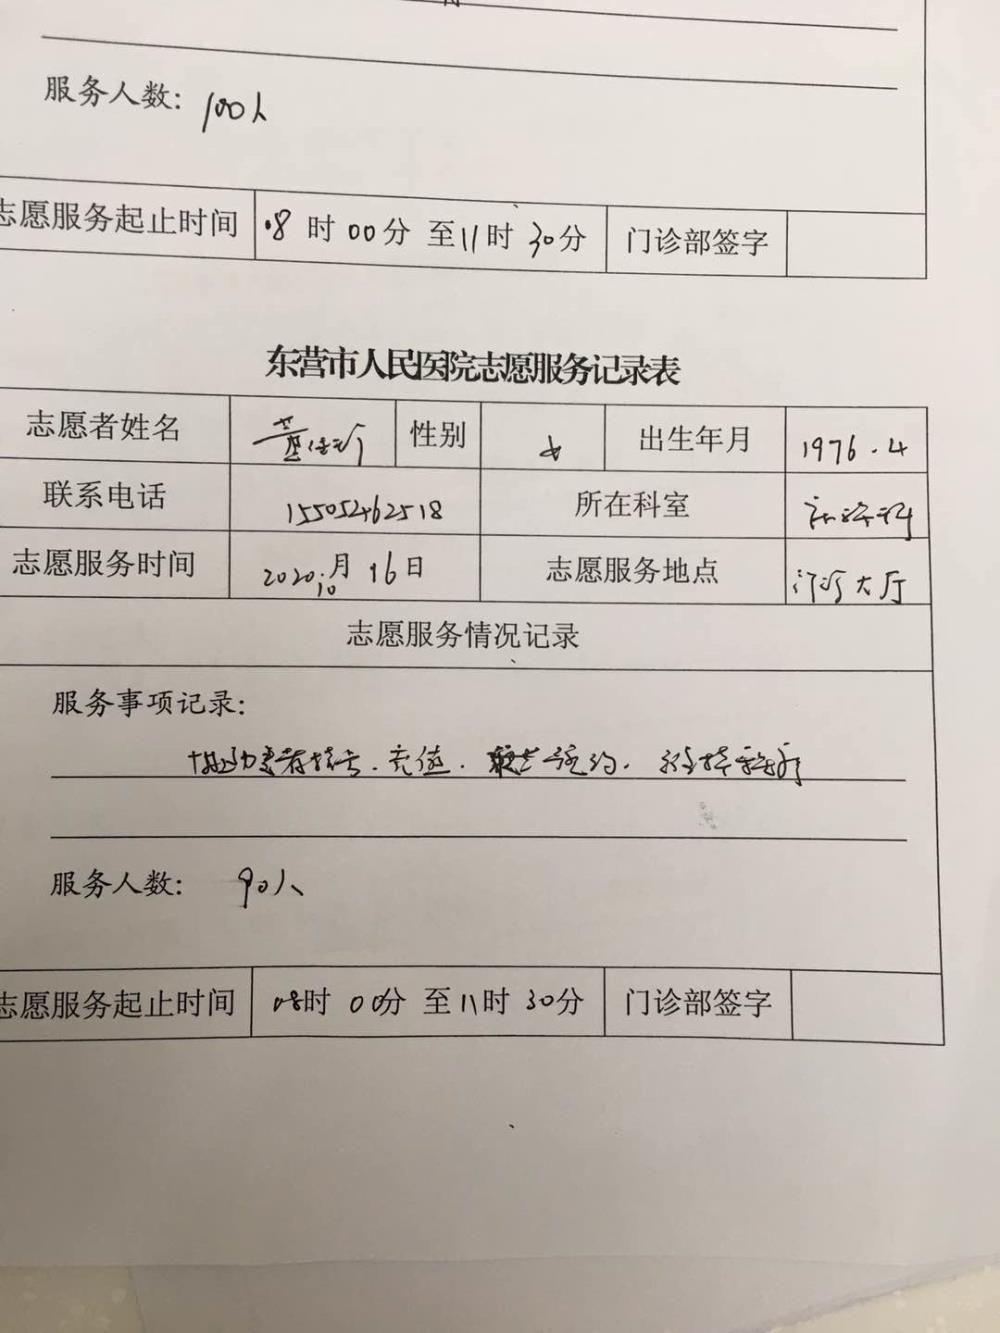 服务人数: 100人
志愿服务起止时间 08时00分至11时30分 门诊部签字
东营市人民医院志愿服务记录表
志愿者姓名 性别 女 出生年月 1976.4
联系电话 15505462518 所在科室
志愿服务时间 2020.10月16日 志愿服务地点 门诊大厅
志愿服务情况记录
服务事项记录:
协助患者挂号.充值. 预约. 维持秩序
服务人数: 90人
志愿服务起止时间 08时00分至11时30分 门诊部签字